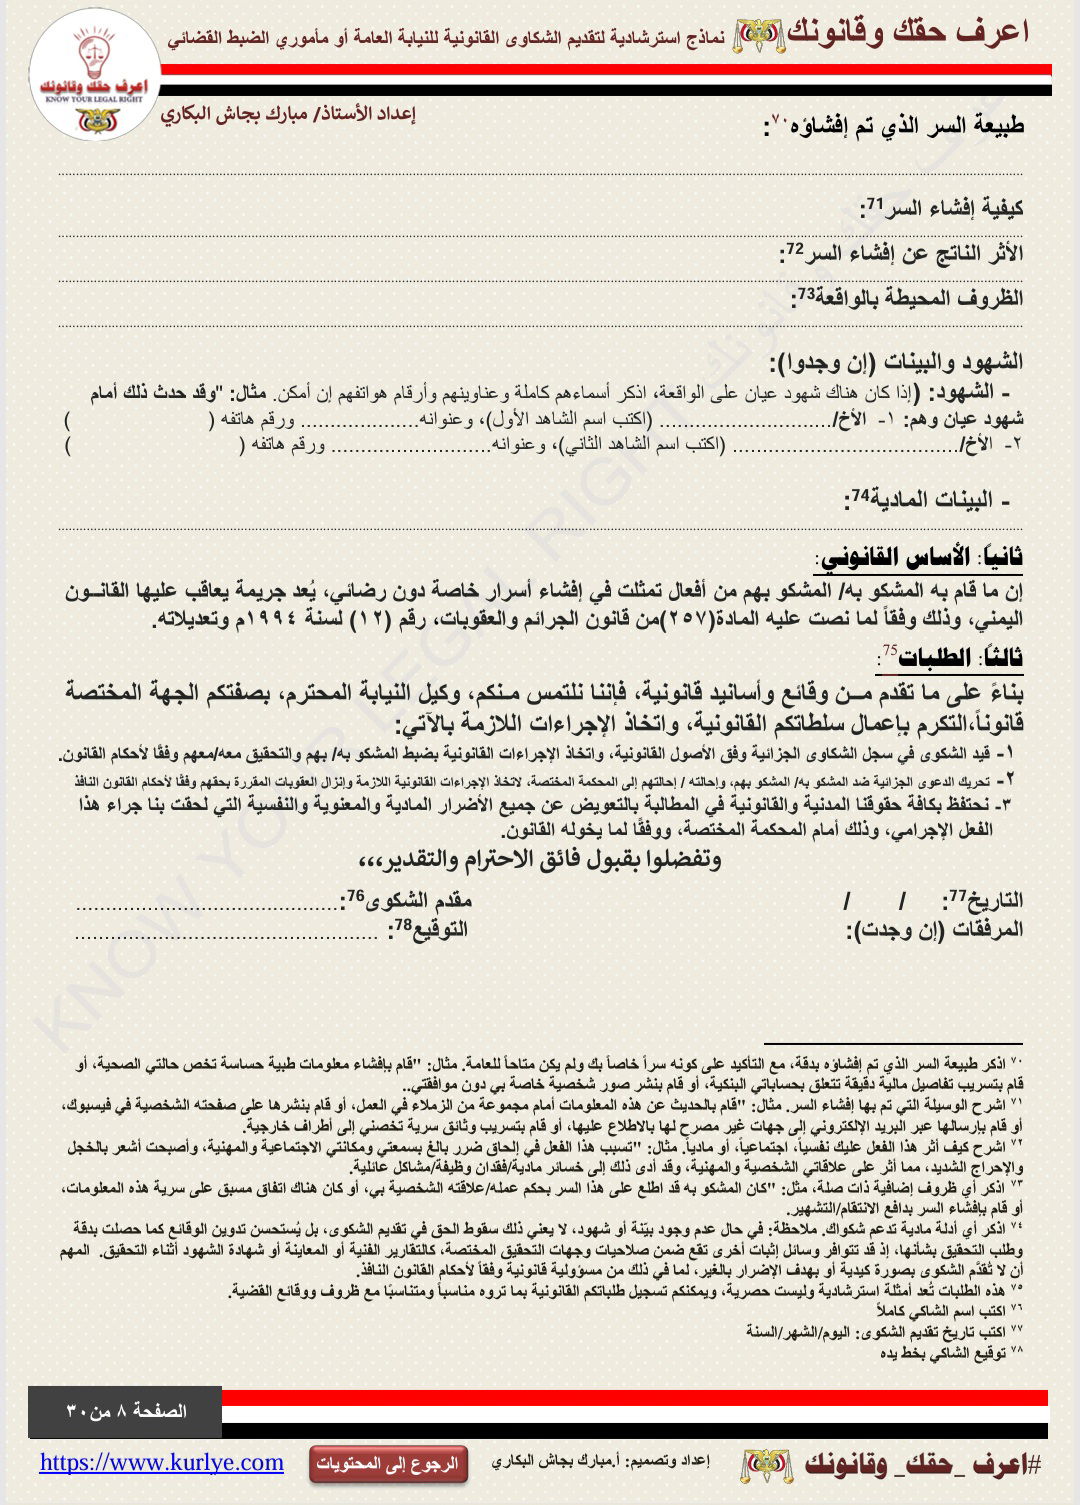 اعرف حقك وقانونك نماذج استرشادية لتقديم الشكاوى القانونية للنيابة العامة أو مأموري الضبط القضائي
اعرف حقك وقانونك
KNOW YOUR LEGAL RIGHT
إعداد الأستاذ/ مبارك بجاش البكاري
طبيعة السر الذي تم إفشاؤه٧٠:
كيفية إفشاء السر71:
الأثر الناتج عن إفشاء السر72:
الظروف المحيطة بالواقعة73:
الشهود والبينات (إن وجدوا):
- الشهود: (إذا كان هناك شهود عيان على الواقعة، اذكر أسماءهم كاملة وعناوينهم وأرقام هواتفهم إن أمكن. مثال: "وقد حدث ذلك أمام
شهود عيان وهم: ١- الأخ/............................. (اكتب اسم الشاهد الأول)، وعنوانه.................... ورقم هاتفه ( )
٢- الأخ/...................................... (اكتب اسم الشاهد الثاني)، وعنوانه........................... ورقم هاتفه ( )
- البينات المادية74:
ثانياً: الأساس القانوني:
إن ما قام به المشكو به/ المشكو بهم من أفعال تمثلت في إفشاء أسرار خاصة دون رضائي، يُعد جريمة يعاقب عليها القانــون
اليمني، وذلك وفقاً لما نصت عليه المادة(٢٥٧)من قانون الجرائم والعقوبات، رقم (١٢) لسنة ١٩٩٤م وتعديلاته.
ثالثاً: الطلبات75:
بناءً على ما تقدم مــن وقائع وأسانيد قانونية، فإننا نلتمس مـنكم، وكيل النيابة المحترم، بصفتكم الجهة المختصة
قانوناً،التكرم بإعمال سلطاتكم القانونية، واتخاذ الإجراءات اللازمة بالآتي:
١- قيد الشكوى في سجل الشكاوى الجزائية وفق الأصول القانونية، واتخاذ الإجراءات القانونية بضبط المشكو به/ بهم والتحقيق معه/معهم وفقًا لأحكام القانون.
٢- تحريك الدعوى الجزائية ضد المشكو به/ المشكو بهم، وإحالته / إحالتهم إلى المحكمة المختصة، لاتخاذ الإجراءات القانونية اللازمة وإنزال العقوبات المقررة بحقهم وفقًا لأحكام القانون النافذ
٣- نحتفظ بكافة حقوقنا المدنية والقانونية في المطالبة بالتعويض عن جميع الأضرار المادية والمعنوية والنفسية التي لحقت بنا جراء هذا
الفعل الإجرامي، وذلك أمام المحكمة المختصة، ووفقًا لما يخوله القانون.
وتفضلوا بقبول فائق الاحترام والتقدير،،،
التاريخ77: / / مقدم الشكوى76:..........................................
المرفقات (إن وجدت): التوقيع78: ................................................
٧٠ اذكر طبيعة السر الذي تم إفشاؤه بدقة، مع التأكيد على كونه سراً خاصاً بك ولم يكن متاحاً للعامة. مثال: "قام بإفشاء معلومات طبية حساسة تخص حالتي الصحية، أو
قام بتسريب تفاصيل مالية دقيقة تتعلق بحساباتي البنكية، أو قام بنشر صور شخصية خاصة بي دون موافقتي..
٧١ اشرح الوسيلة التي تم بها إفشاء السر. مثال: "قام بالحديث عن هذه المعلومات أمام مجموعة من الزملاء في العمل، أو قام بنشرها على صفحته الشخصية في فيسبوك،
أو قام بإرسالها عبر البريد الإلكتروني إلى جهات غير مصرح لها بالاطلاع عليها، أو قام بتسريب وثائق سرية تخصني إلى أطراف خارجية.
٧٢ اشرح كيف أثر هذا الفعل عليك نفسياً، اجتماعياً، أو مادياً. مثال: "تسبب هذا الفعل في إلحاق ضرر بالغ بسمعتي ومكانتي الاجتماعية والمهنية، وأصبحت أشعر بالخجل
والإحراج الشديد، مما أثر على علاقاتي الشخصية والمهنية، وقد أدى ذلك إلى خسائر مادية/فقدان وظيفة/مشاكل عائلية.
٧٣ اذكر أي ظروف إضافية ذات صلة، مثل: "كان المشكو به قد اطلع على هذا السر بحكم عمله/علاقته الشخصية بي، أو كان هناك اتفاق مسبق على سرية هذه المعلومات،
أو قام بإفشاء السر بدافع الانتقام/التشهير.
٧٤ اذكر أي أدلة مادية تدعم شكواك. ملاحظة: في حال عدم وجود بيّنة أو شهود، لا يعني ذلك سقوط الحق في تقديم الشكوى، بل يُستحسن تدوين الوقائع كما حصلت بدقة
وطلب التحقيق بشأنها، إذ قد تتوافر وسائل إثبات أخرى تقع ضمن صلاحيات وجهات التحقيق المختصة، كالتقارير الفنية أو المعاينة أو شهادة الشهود أثناء التحقيق. المهم
أن لا تُقدَّم الشكوى بصورة كيدية أو بهدف الإضرار بالغير، لما في ذلك من مسؤولية قانونية وفقاً لأحكام القانون النافذ.
٧٥ هذه الطلبات تُعد أمثلة استرشادية وليست حصرية، ويمكنكم تسجيل طلباتكم القانونية بما تروه مناسباً ومتناسبًا مع ظروف ووقائع القضية.
٧٦ اكتب اسم الشاكي كاملاً
٧٧ اكتب تاريخ تقديم الشكوى: اليوم/الشهر/السنة
٧٨ توقيع الشاكي بخط يده
الصفحة ٨ من ٣٠
#اعرف_حقك_وقانونك إعداد وتصميم: أ.مبارك بجاش البكاري الرجوع إلى المحتويات https://www.kurlye.com
KNOW YOUR LEGAL RIGHT